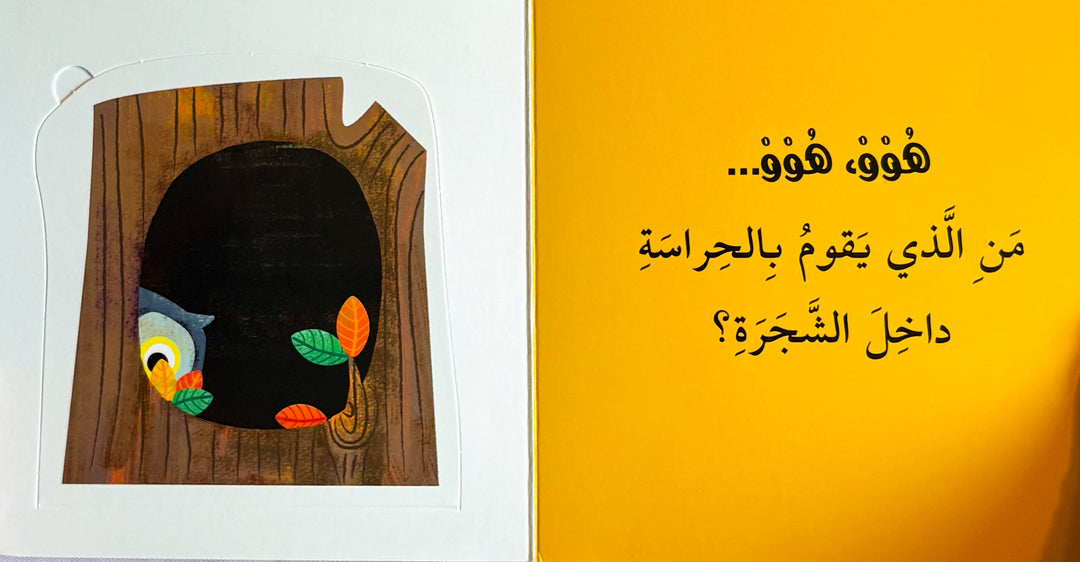 هُوْوْ، هُوْوْ...
مَنِ الَّذي يَقومُ بِالحِراسَةِ
داخِلَ الشَّجَرَةِ؟